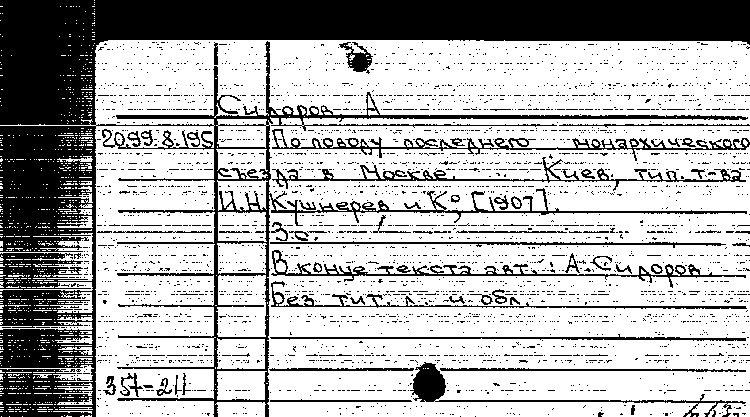 Сидоров, А
20.99.8.195 По поводу последнего монархического
съезда в Москве. Киев, тип. т-ва
И.Н. Кушнерев и Ко, [1907].
3 с.
В конце текста авт.: А. Сидоров.
Без тит. л. и обл.
357-211